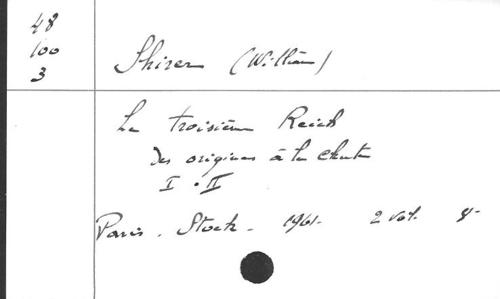 48
100
3
Shirer (William)
Le troisième Reich
Des origines à la chute
I . II
Paris . Stock - 1961- 2 vol. 8-